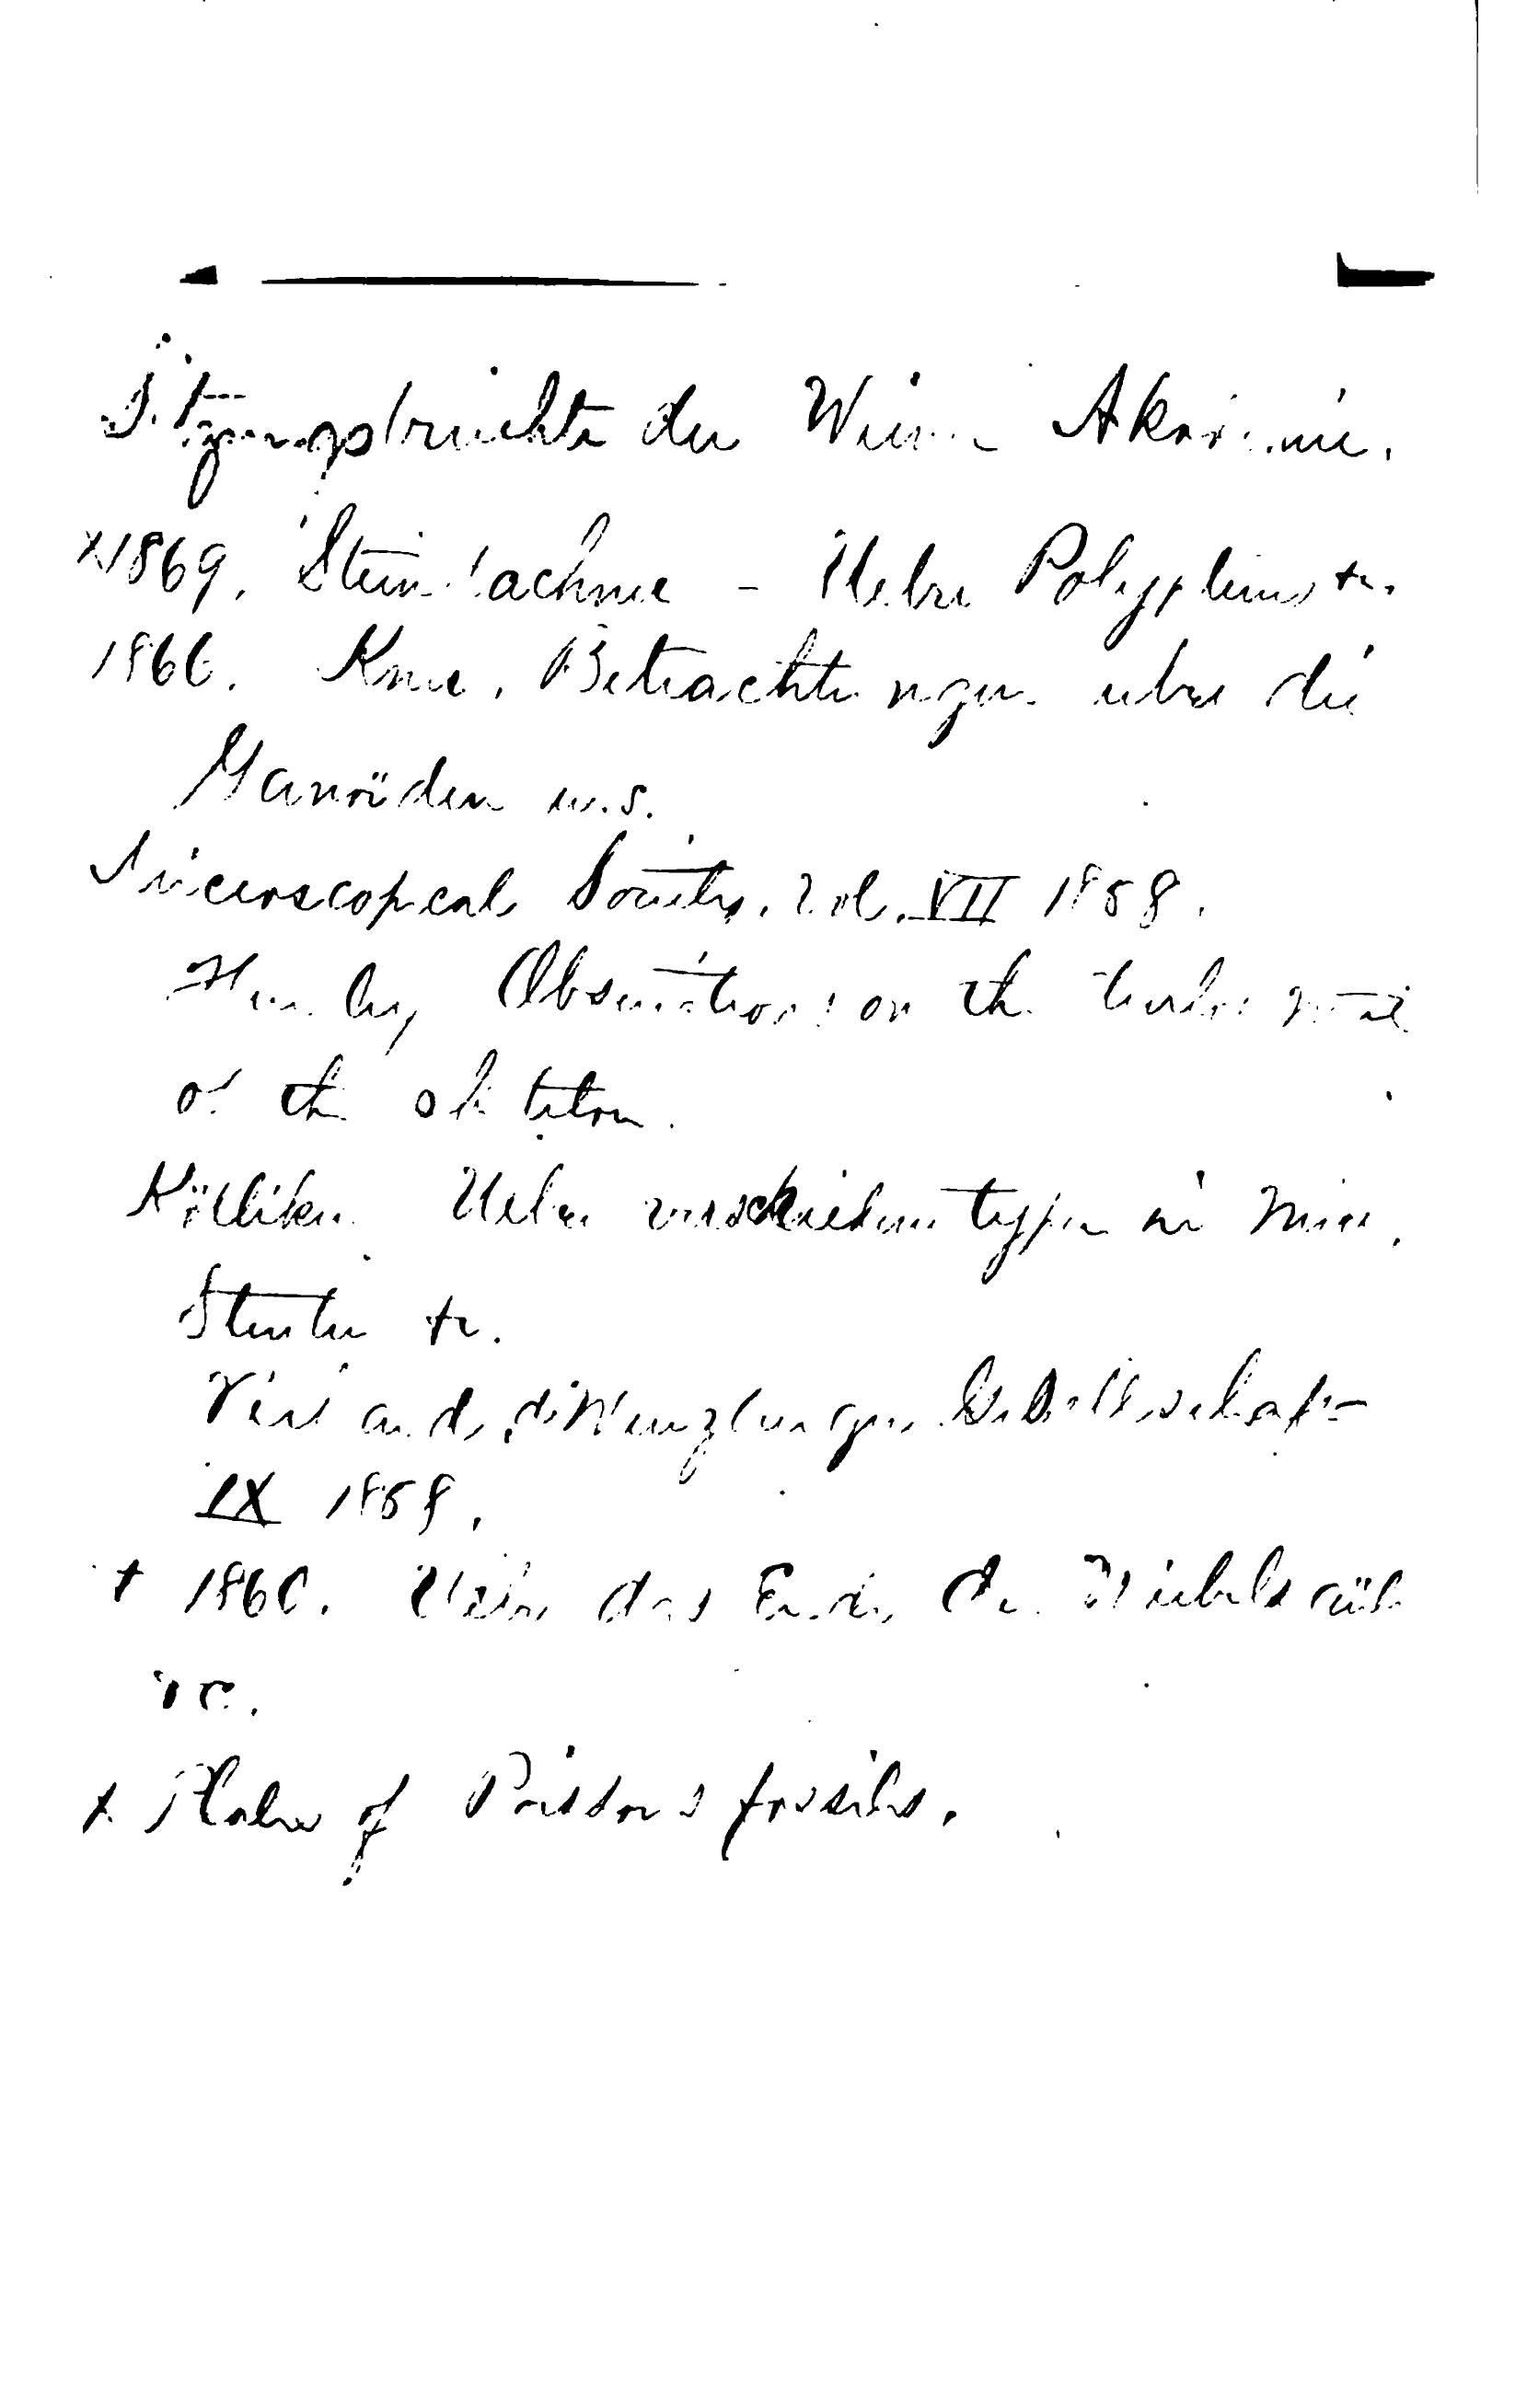 Sitzungsberichte der Wiener Akademie.
x 1869. Steindachner - Ueber Polypterus &c.
1866. Kner. Betrachtungen uber die
Ganoiden u.s.
Microscopical Society. Vol. VII 1858.
Huxley Observations on the
of the skeleton.
Kölliker Ueber verschiedene typen in
&c.
Verhand. d. Wurzburger Gesellschaft
IX 1858.
+ 1860. Ueber das Ende der Wirbelsäule
&c.
x Plates of fossils.